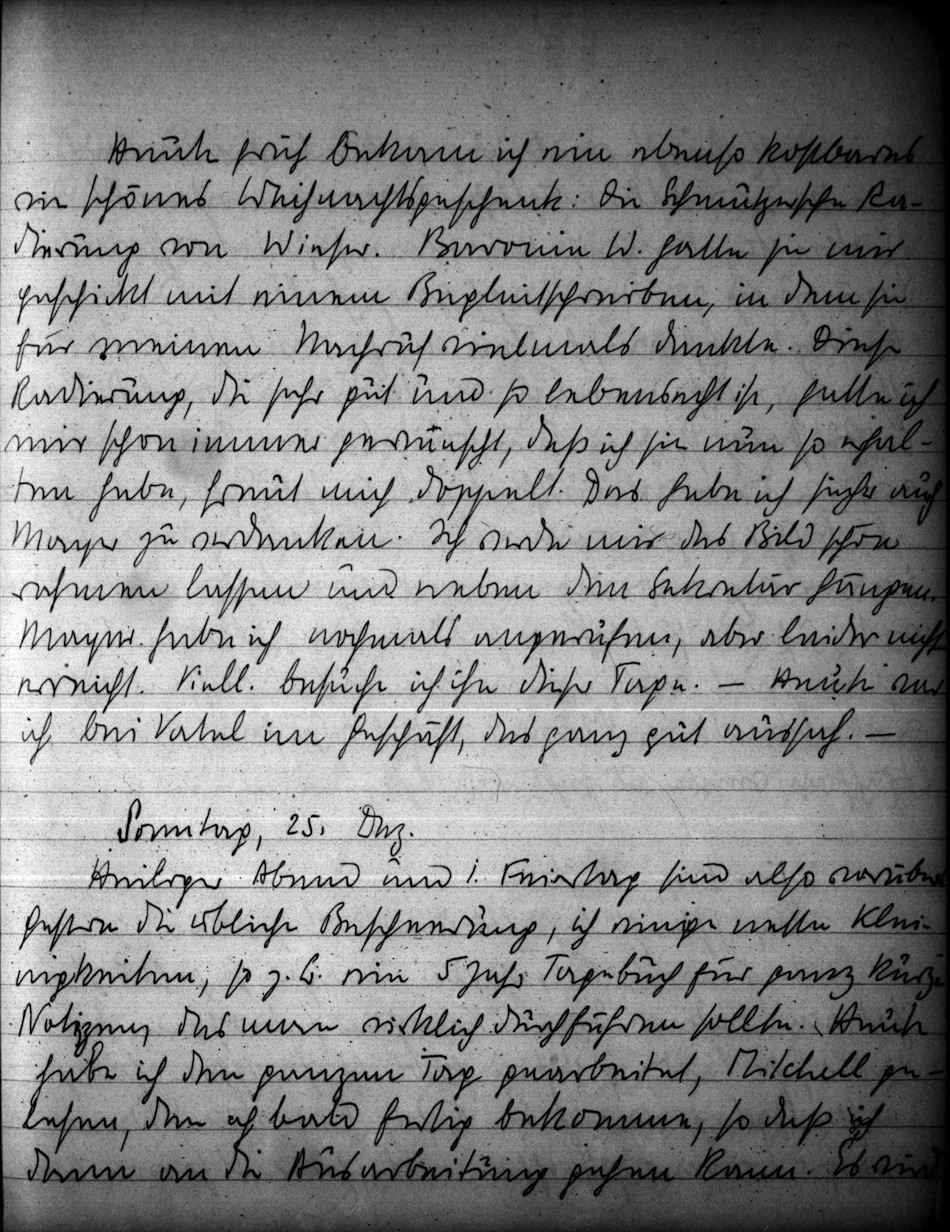 Heute früh bekam ich ein ebenso kostbares
wie schönes Weihnachtsgeschenk: die Schmutzersche Ra-
dierung von Wieser. Baronin W. hatte sie mir
geschickt mit einem Begleitschreiben, in dem sie
für meinen Nachruf vielmals dankte. Diese
Radierung, die sehr gut und so lebensecht ist, hatte ich
mir schon immer gewünscht, daß ich sie nun so erhal-
ten habe, freut mich doppelt. Das habe ich sicher auch
Mayer zu verdanken. Ich werde mir das Bild schön
rahmen lassen und neben den Sekretär hängen.
Mayer habe ich nochmals angerufen, aber leider nicht
erreicht. Viell. besuche ich ihn dieser Tage. — Heute war
ich bei Vatel im Geschäft, das ganz gut aussah. —
Sonntag, 25. Dez.
Heiliger Abend und 1. Feiertag sind also vorüber
gestern die übliche Bescherung, ich einige nette Klei-
nigkeiten, so z.B. ein 5 Jahr Tagebuch für ganz kurze
Notizen, das man wirklich durchführen sollte. Heute
habe ich den ganzen Tag gearbeitet, Mitchell ge-
lesen, den ich bald fertig bekomme, so daß ich
dann an die Ausarbeitung gehen kann. Es wird